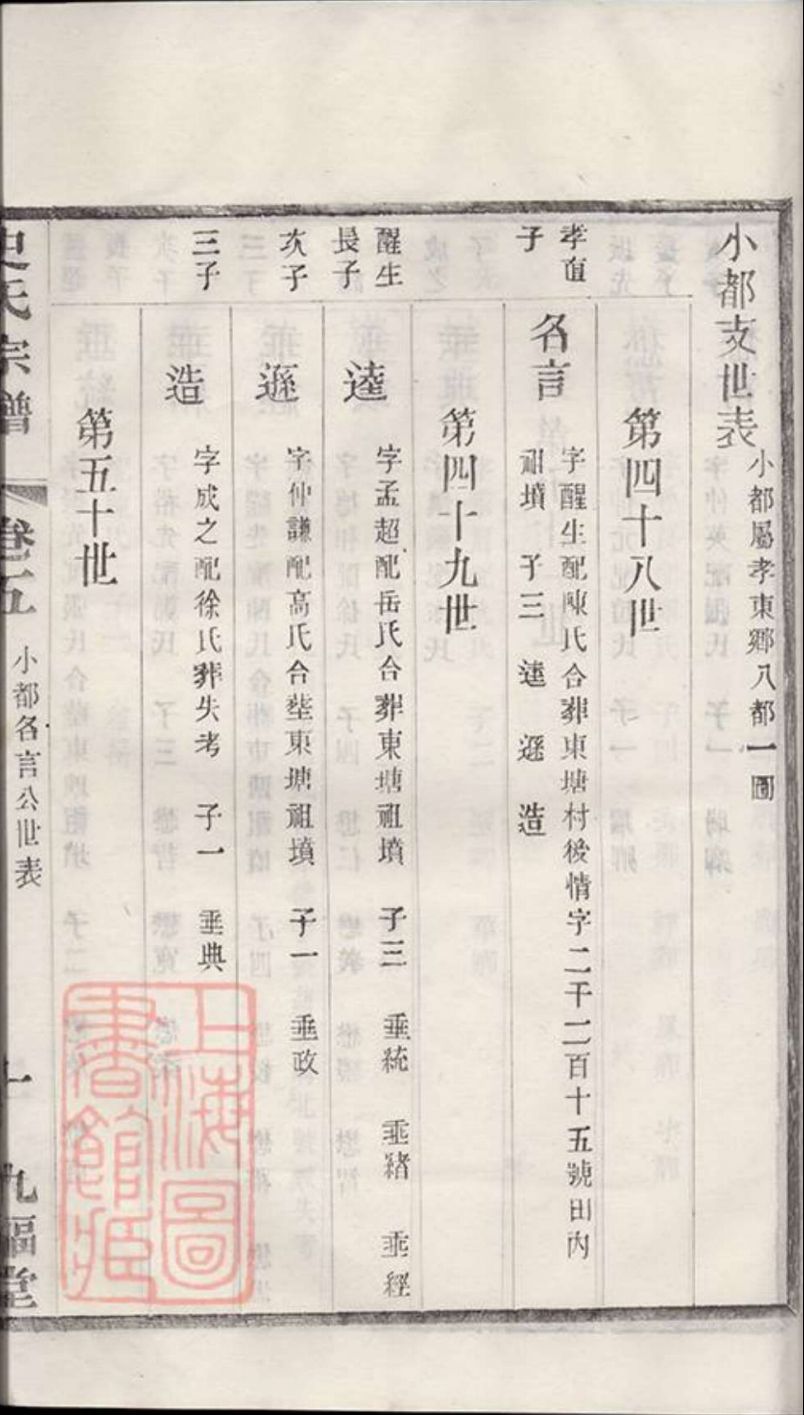 小都支世表
小都屬孝東鄉八都一圖
第四十八世
孝直
子
名言
字醒生配陳氏合葬東塘村後情字二千二百十五號田內
祖墳 子三 逵 遜 造
第四十九世
醒生
長子
逵
字孟超配岳氏合葬東塘祖墳 子三 垂統 垂緒 垂經
次子
遜
字仲謙配高氏合塟東塘祖墳 子一 垂政
三子
造
字成之配徐氏葬失考 子一 垂典
第五十世
史氏宗譜
卷五
小都名言公世表
一
九福堂
上海圖書館藏